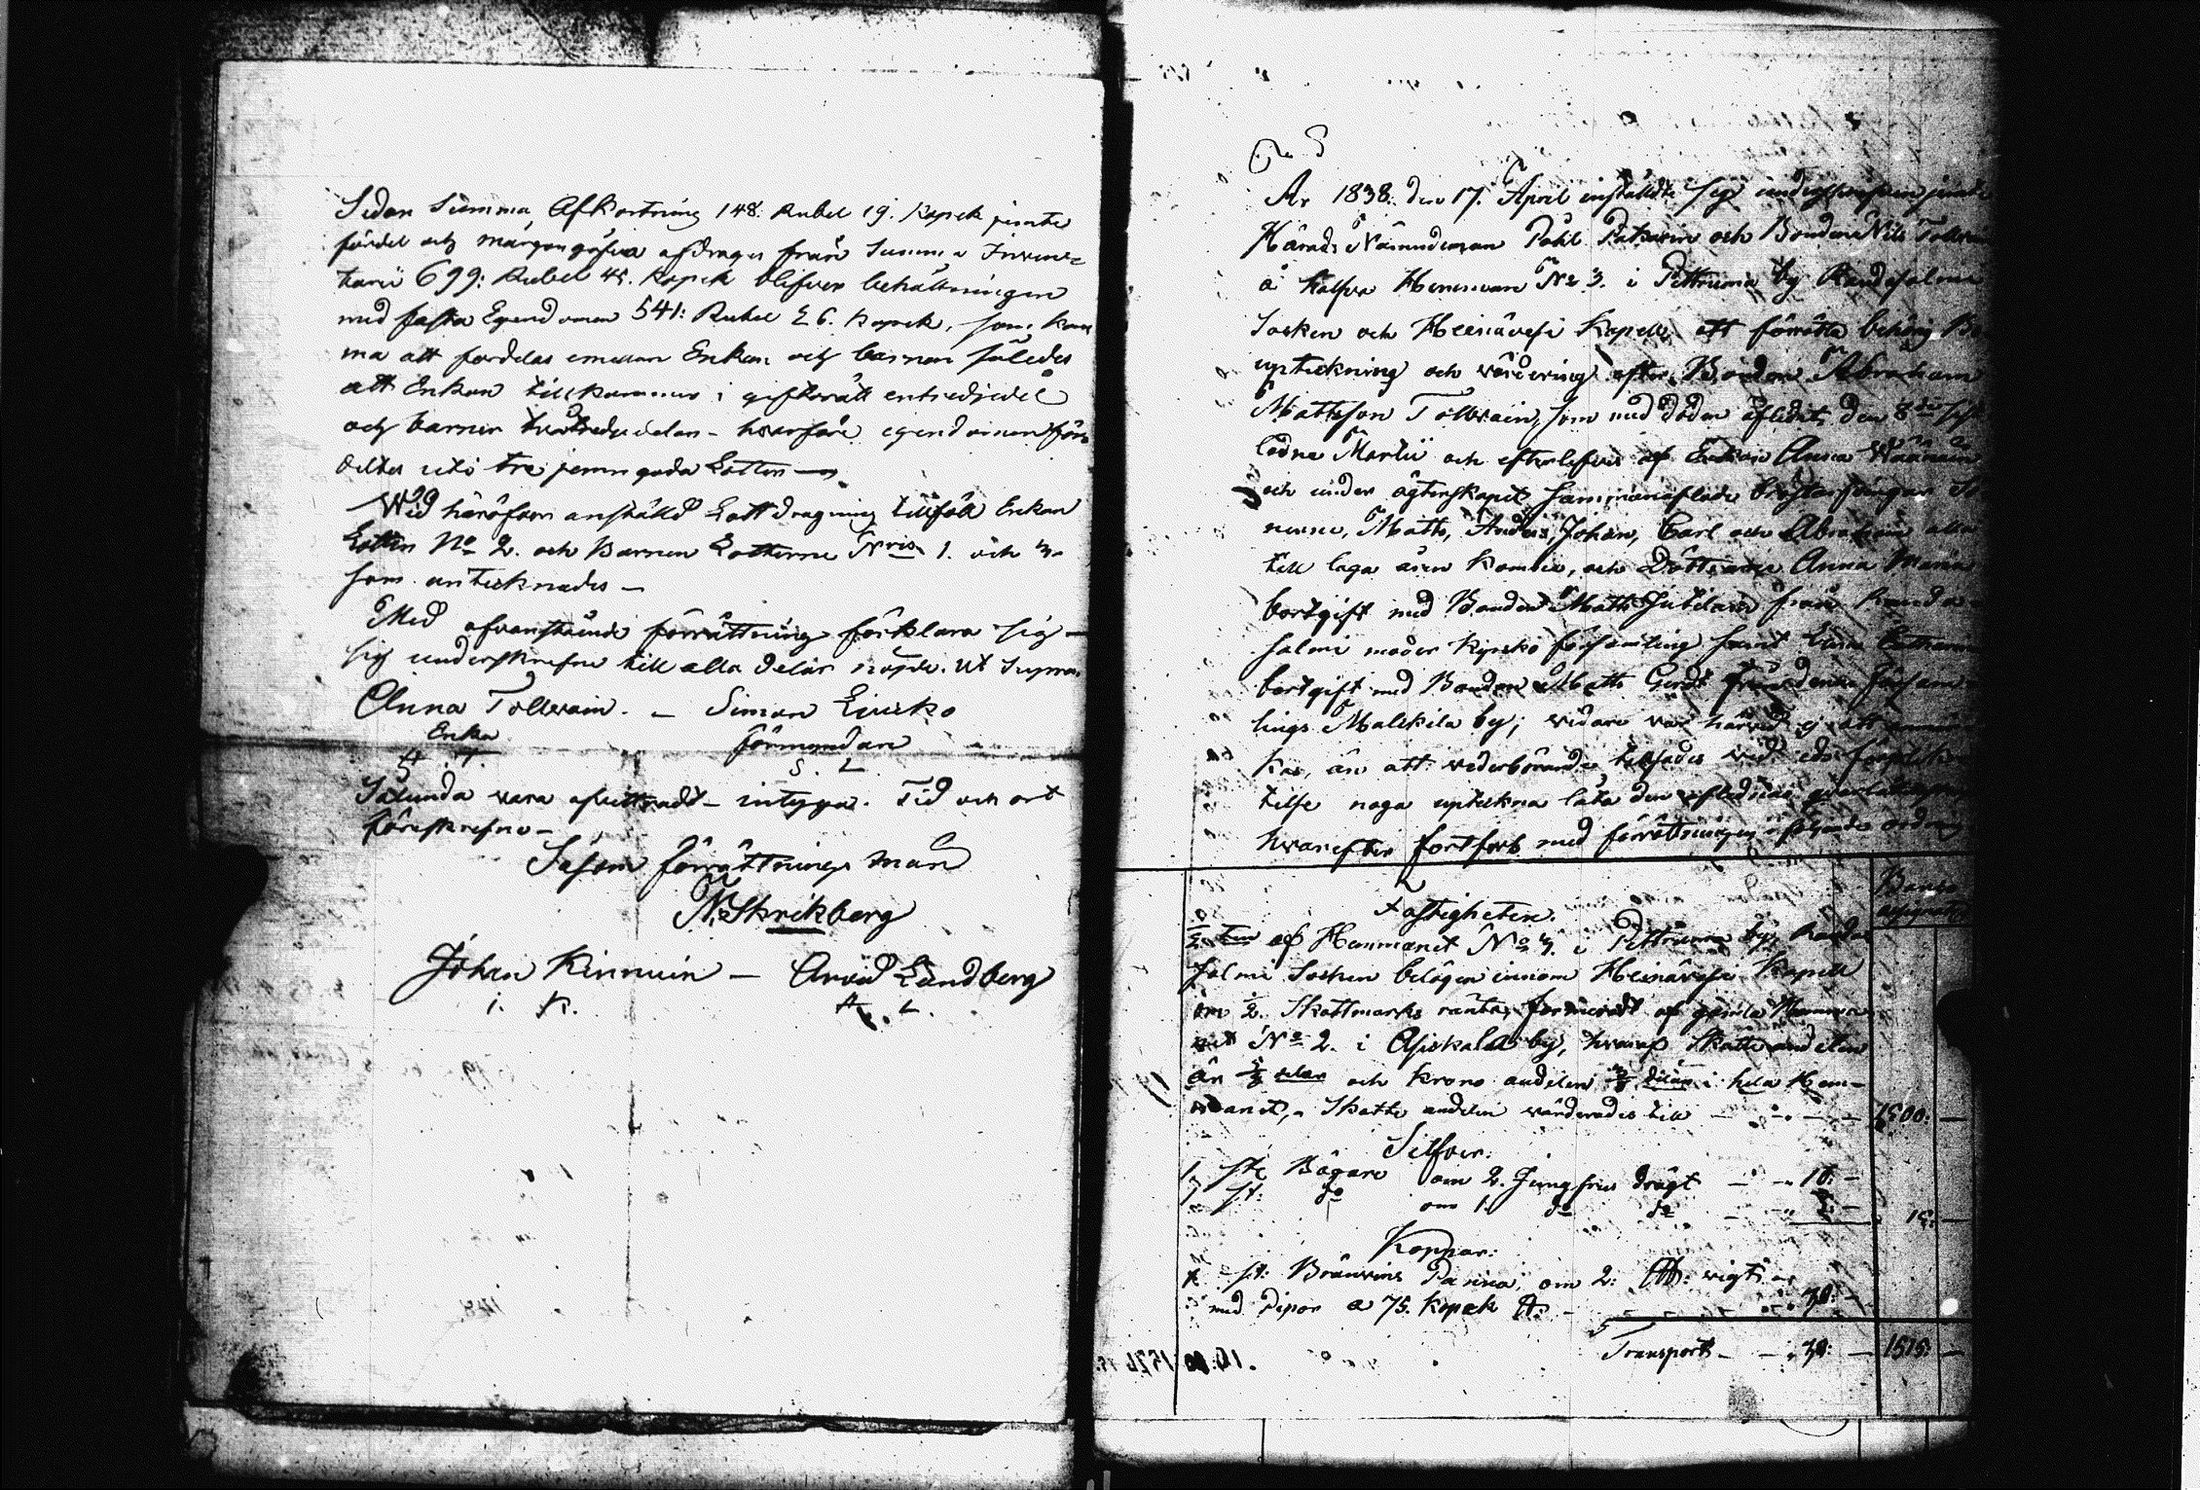 Sedan Summa Afkortning 148. Rubel 19. Kopek jemte
fördel och morgongåfva afdrages från Summa Inven-
tarii 699: Rubel 45. Kopek blifver behållningen
med fasta Egendomen 541: Rubel 26. Kopek, som kom
ma att fördelas emellan Enkan och barnen således
att Enkan tillkommer i giftorätt entredjedel
och barnen tvåtredjedelar - hvarföre egendomen för-
deltes uti tre jemngoda Lotter
Wid häröfver anstäld Lottdragning tillföll Enkan
Lotten No 2. och Barnen Lotterne Nris 1. och 3.
som antecknades -
Med ofvanstående förrättning förklara sig -
sig underskrefne till alla delar nögde. Ut Supra.
Anna Tolwain. - Simon Liucko
Enka förmyndare
A. T. S. L.
Sålunda vara afvittradt - intyga. Tid och ort
föreskrefne -
Såsom förrättnings man
N. Skrikberg
Johan Kinnuin - Arvid Lundberg
i. K. A. L.
År 1838. den 17. April instälde sig undertecknad jemte
Härads Nämndeman Påhl och Bonden Nils Tolwain
å halfva Hemman No 3. i by Randasalmi
Socken och Heinävesi Kapell att förrätta behörig
upteckning och värdering efter Bonden Abraham
Mattsson Tolwain, som med döden aflidit den 8de sist
ledne Martii och efterlefves af Enkan Anna Wäänäin
och under ägtenskapet sammanaflade bröstarfvingar Sö
nerne, Matts, Anders, Johan, Carl och Abraham alla
till laga åren komne, och Döttrarne Anna Maria
bortgift med Bonden Matts från Randa-
salmi moder Kyrko församling samt
bortgift med Bonden Matts från denna Församl
lings Malkila by; vidare var härvid ej att anmär
kas, än att vederbörande tilsades vid eds förpligt
telse noga upteckna låta den aflidnes qvarlåtenskap
hvarefter fortfors med förrättningen i följande ordning
Fastigheten. Banco
assignater
af Hemmanet No 3. i by Randa
salmi Socken belägen innom Heinävesi Kapell
om 2. Skattmarks ränta, formerat af gamla Hemma
net No 2. i by, hvaraf Skatte andelen
är delar och Krono andelen delar i hela Hem-
manet, Skatte andelen värderades till - - - 1500: -
Silfver:
1 st: Bägare om 2. Jungfrus drägt - - 10: -
1 st: do om 1. do do - - 5: - 15: -
Koppar:
1 st: Bränvins Panna, om 2: vigt
med Pipor a 75. Kopek - 30: -
Transport - - 30: - 1515: -